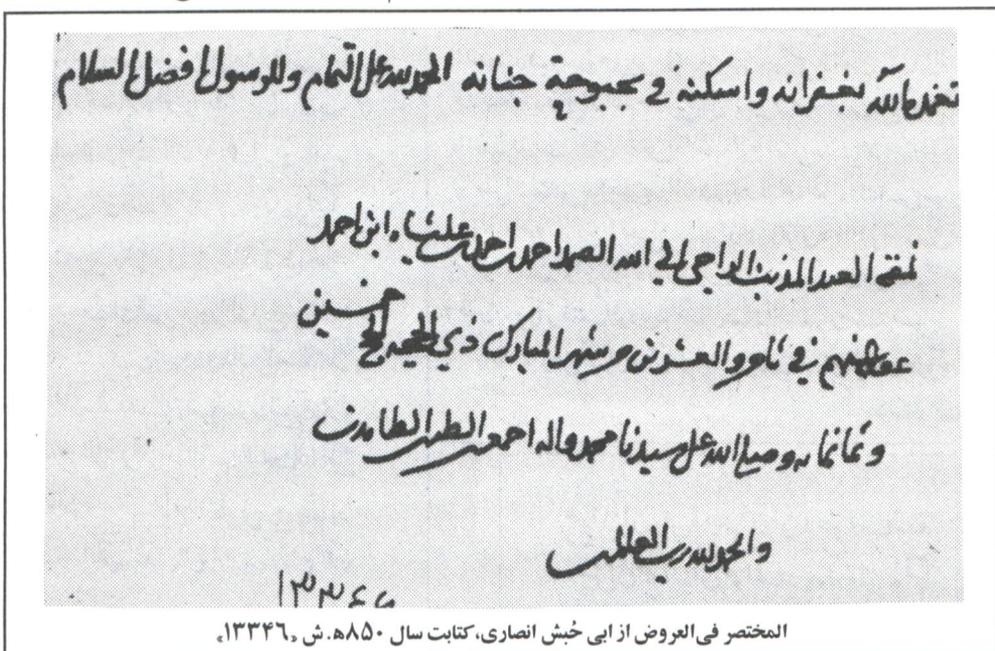 تغمده الله بغفرانه واسكنه في بحبوحة جنانه الحمد لله على التمام وللرسول افضل السلام
نمقه العبد المذنب الراجي الى الله الصمد احمد ابن احمد
عفى عنهم في ثامن والعشرين من شهر المبارك ذي الحجه الحج خمسين
وثمانمايه وصلى الله على سيدنا محمد واله اجمعين الطيبين الطاهرين
والحمد لله رب العالمين
۱۳۳۴۶
المختصر فی‌العروض از ابی حُبش انصاری، کتابت سال ۸۵۰ه‍. ش «۱۳۳۴۶»